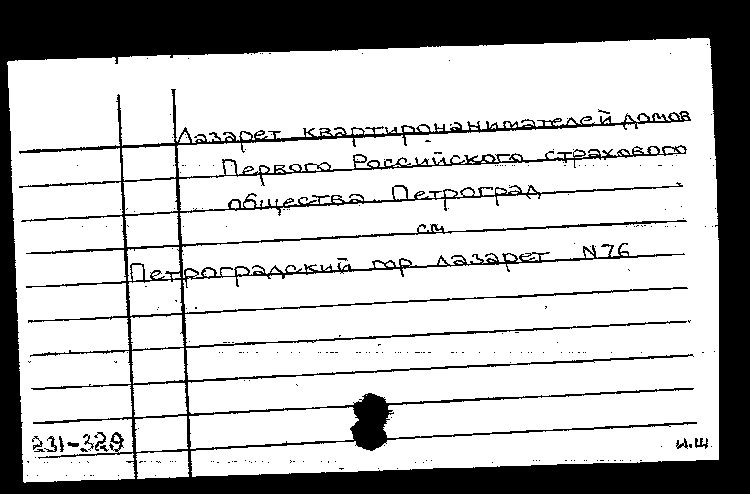 Лазарет квартиронанимателей домов
Первого Российского страхового
общества. Петроград
см.
Петроградский гор. лазарет N 76
231-328
И.Щ